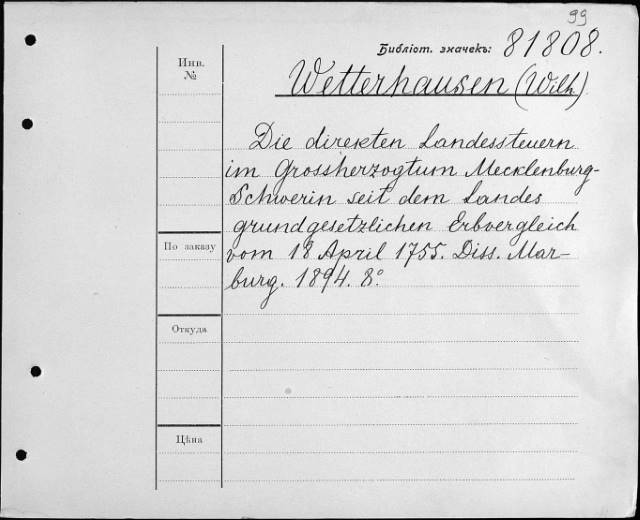 99
Библіот. значекъ: 81808.
Инв.
№
Wetterhausen (Wilh).
Die direkten Landessteuern
im Grossherzogtum Mecklenburg-
Schwerin seit dem Landes
grundgesetzlichen Erbvergleich
По заказу
vom 18 April 1755. Diss. Mar-
burg. 1894. 8º
Откуда
Цѣна